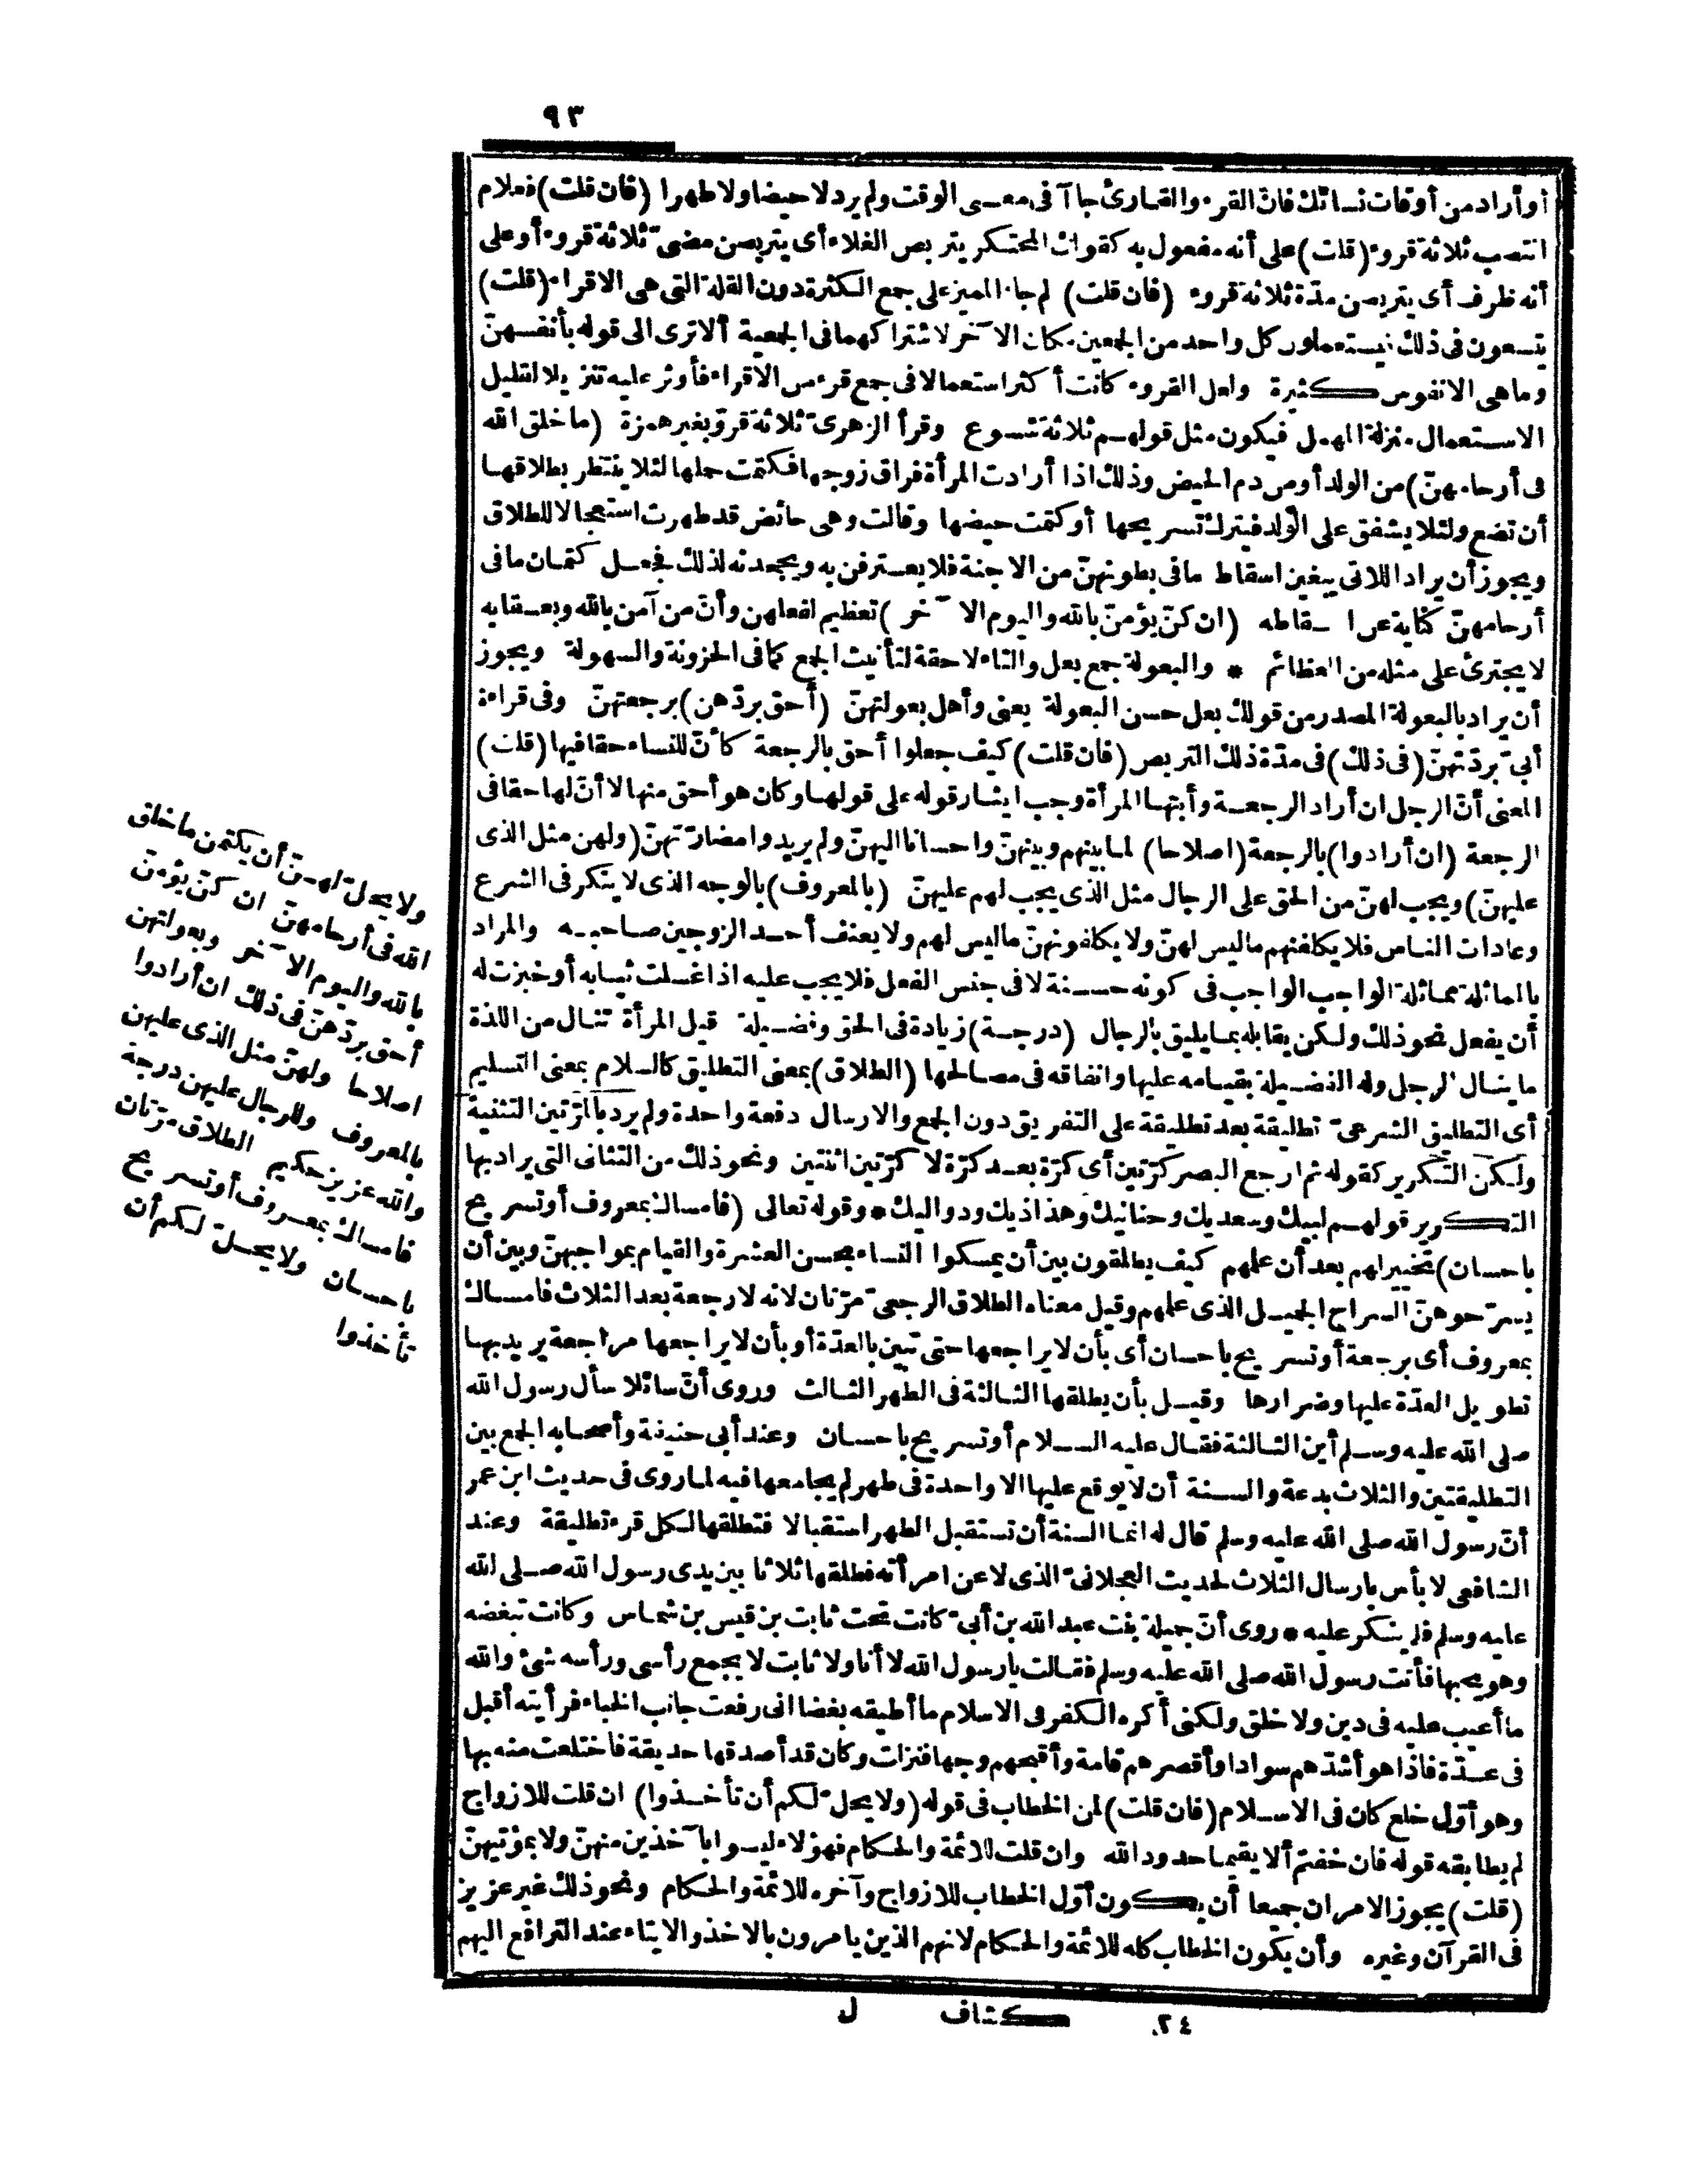 ٩٣
أو أراد من أوقات نسائك فان القرء والقارئ جاآ فى معنى الوقت ولم يرد لا حيضا ولا طهرا (فان قلت) فعلام
انتصب ثلاثة قروء (قلت) على أنه مفعول به كقولك المحتكر يتربص الغلاء أى يتربصن مضىّ ثلاثة قروء أو على
أنه ظرف أى يتربصن مدّة ثلاثة قروء (فان قلت) لم جاء المميز على جمع الكثرة دون القلة التى هى الاقراء (قلت)
يتسعون فى ذلك فيستعملون كل واحد من الجمعين مكان الآخر لاشتراكهما فى الجمعية ألا ترى الى قوله بأنفسهنّ
وما هى الا نفوس كثيرة ولعل القروء كانت أكثر استعمالا فى جمع قرء من الاقراء فأوثر عليه تنزيلا لقليل
الاستعمال منزلة المهمل فيكون مثل قولهم ثلاثة شسوع وقرأ الزهرىّ ثلاثة قروّ بغير همزة (ما خلق الله
فى أرحامهنّ) من الولد أو من دم الحيض وذلك اذا أرادت المرأة فراق زوجها فكتمت حملها لئلا ينتظر بطلاقها
أن تضع ولئلا يشفق على الولد فيترك تسريحها أو كتمت حيضها وقالت وهى حائض قد طهرت استعجالا للطلاق
ويجوز أن يراد اللاتى يبغين اسقاط ما فى بطونهنّ من الاجنة فلا يعترفن به ويجحدنه لذلك فجعل كتمان ما فى
أرحامهنّ كناية عن اسقاطه (ان كنّ يؤمنّ بالله واليوم الآخر) تعظيم لفعلهن وأنّ من آمن بالله وبعقابه
لا يجترئ على مثله من العظائم * والبعولة جمع بعل والتاء لاحقة لتأنيث الجمع كما فى الحزونة والسهولة ويجوز
أن يراد بالبعولة المصدر من قولك بعل حسن البعولة يعنى وأهل بعولتهنّ (أحق بردّهن) برجعتهنّ وفى قراءة
أبىّ بردّتهنّ (فى ذلك) فى مدّة ذلك التربص (فان قلت) كيف جعلوا أحق بالرجعة كأنّ للنساء حقا فيها (قلت)
المعنى أنّ الرجل ان أراد الرجعة وأبتها المرأة وجب ايثار قوله على قولها وكان هو أحق منها لا أنّ لها حقا فى
الرجعة (ان أرادوا) بالرجعة (اصلاحا) لما بينهم وبينهنّ واحسانا اليهنّ ولم يريدوا مضارّتهنّ (ولهن مثل الذى
عليهنّ) ويجب لهنّ من الحق على الرجال مثل الذى يجب لهم عليهنّ (بالمعروف) بالوجه الذى لا ينكر فى الشرع
وعادات الناس فلا يكلفنهم ما ليس لهنّ ولا يكلفونهنّ ما ليس لهم ولا يعنف أحد الزوجين صاحبه والمراد
بالمماثلة مماثلة الواجب الواجب فى كونه حسنة لا فى جنس الفعل فلا يجب عليه اذا غسلت ثيابه أو خبزت له
أن يفعل نحو ذلك ولكن يقابله بما يليق بالرجال (درجة) زيادة فى الحق وفضيلة قيل المرأة تنال من اللذة
ما ينال الرجل وله الفضيلة بقيامه عليها وانفاقه فى مصالحها (الطلاق) بمعنى التطليق كالسلام بمعنى التسليم
أى التطليق الشرعىّ تطليقة بعد تطليقة على التفريق دون الجمع والارسال دفعة واحدة ولم يرد بالمرّتين التثنية
ولكن التكرير كقوله ثم ارجع البصر كرّتين أى كرّة بعد كرّة لا كرّتين اثنتين ونحو ذلك من التثانى التى يراد بها
التكرير قولهم لبيك وسعديك وحنانيك وهذاذيك ودواليك * وقوله تعالى (فامساك بمعروف أو تسريح
باحسان) تخيير لهم بعد أن علمهم كيف يطلقون بين أن يمسكوا النساء بحسن العشرة والقيام بمواجبهنّ وبين أن
يسرّحوهنّ السراح الجميل الذى علمهم وقيل معناه الطلاق الرجعىّ مرّتان لانه لا رجعة بعد الثلاث فامساك
بمعروف أى برجعة أو تسريح باحسان أى بأن لا يراجعها حتى تبين بالعدّة أو بأن لا يراجعها مراجعة يريد بها
تطويل العدّة عليها وضرارها وقيل بأن يطلقها الثالثة فى الطهر الثالث وروى أنّ سائلا سأل رسول الله
صلى الله عليه وسلم أين الثالثة فقال عليه السلام أو تسريح باحسان وعند أبى حنيفة وأصحابه الجمع بين
التطليقتين والثلاث بدعة والسنة أن لا يوقع عليها الا واحدة فى طهر لم يجامعها فيه لما روى فى حديث ابن عمر
أنّ رسول الله صلى الله عليه وسلم قال له انما السنة أن تستقبل الطهر استقبالا فتطلقها لكل قرء تطليقة وعند
الشافعى لا بأس بارسال الثلاث لحديث العجلانىّ الذى لاعن امرأته فطلقها ثلاثا بين يدى رسول الله صلى الله
عليه وسلم فلم ينكر عليه * روى أنّ جميلة بنت عبد الله بن أبىّ كانت تحت ثابت بن قيس بن شماس وكانت تبغضه
وهو يحبها فأتت رسول الله صلى الله عليه وسلم فقالت يا رسول الله لا أنا ولا ثابت لا يجمع رأسى ورأسه شئ والله
ما أعيب عليه فى دين ولا خلق ولكنى أكره الكفر فى الاسلام ما أطيقه بغضا انى رفعت جانب الخباء فرأيته أقبل
فى عدّة فاذا هو أشدّهم سوادا وأقصرهم قامة وأقبحهم وجها فنزلت وكان قد أصدقها حديقة فاختلعت منه بها
وهو أوّل خلع كان فى الاسلام (فان قلت) لمن الخطاب فى قوله (ولا يحلّ لكم أن تأخذوا) ان قلت للازواج
لم يطابقه قوله فان خفتم ألا يقيما حدود الله وان قلت للائمة والحكام فهؤلاء ليسوا بآخذين منهنّ ولا بمؤتيهنّ
(قلت) يجوز الامران جميعا أن يكون أوّل الخطاب للازواج وآخره للائمة والحكام ونحو ذلك غير عزيز
فى القرآن وغيره وأن يكون الخطاب كله للائمة والحكام لانهم الذين يامرون بالاخذ والايتاء عند الترافع اليهم
ولا يحلّ لهنّ أن يكتمن ما خلق
الله فى أرحامهنّ ان كنّ يؤمنّ
بالله واليوم الآخر وبعولتهن
أحق بردّهنّ فى ذلك ان أرادوا
اصلاحا ولهنّ مثل الذى عليهن
بالمعروف وللرجال عليهن درجة
والله عزيز حكيم الطلاق مرّتان
فامساك بمعروف أو تسريح
باحسان ولا يحلّ لكم أن
تأخذوا
٢٤ كشاف ل